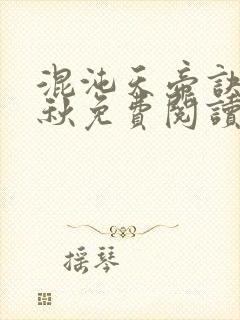 混沌天帝訣
秋免費閱讀
搖琴